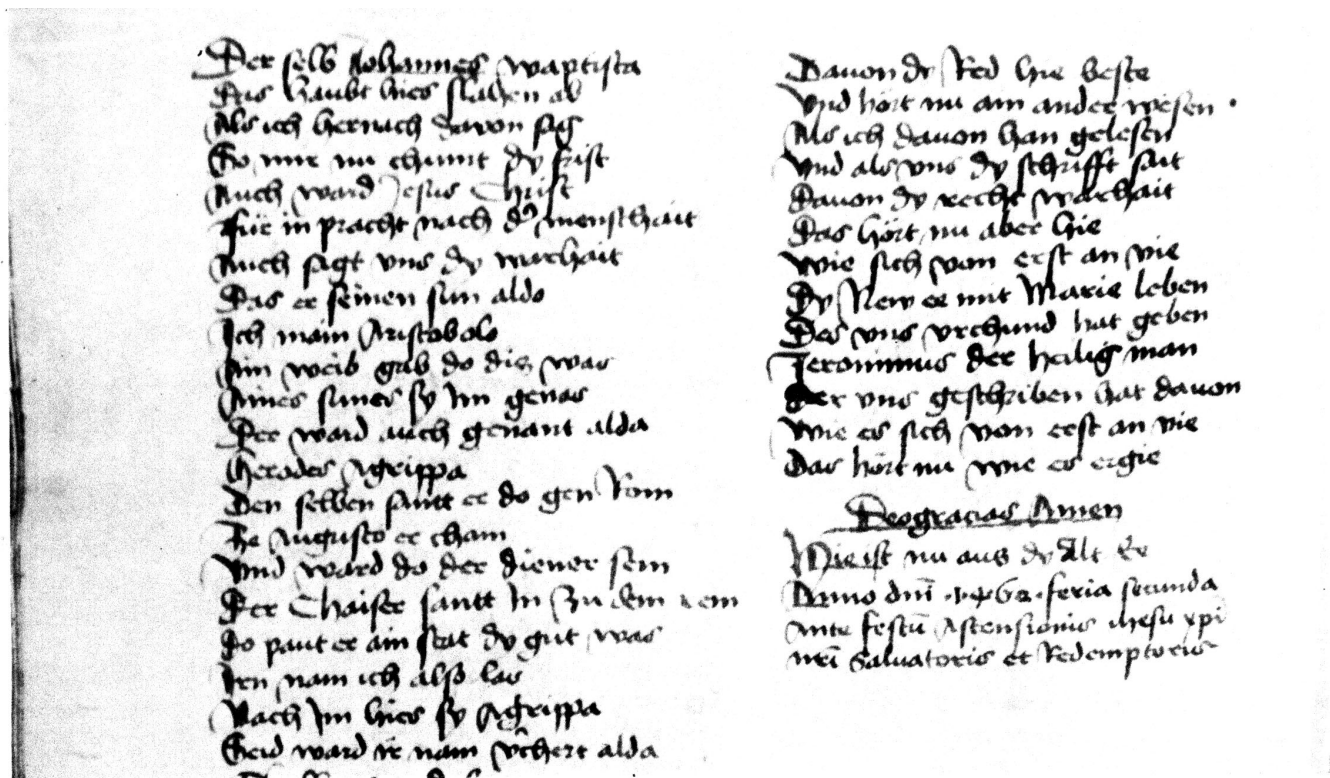 Der selb Johannes waptista
Das haubt hies slahen ab
Als ich hernach davon sag
So mir nu chumt dy frist
Auch ward Jesus Christ
Für in pracht nach der menschait
Auch sagt vns dy warhait
Das er seinen sun aldo
Ich main Aristobolo
Ain weib gab do diz was
Aines sunes sy Im genas
Der ward auch genant alda
Herodes Agrippa
Den selben santt er do gen Rom
Ze Augusto er cham
Vnd ward do der diener sein
Der Chaiser santt In zu dem
Do paut er ain stat dy gut was
Iren nam ich also las
Nach Im hies sy Agrippa
Seid ward ir nam verchert alda
Dauon dy Red hie beste
Vnd hört nu ain ander wesen .
Als ich dauon han gelesen
Vnd als vns dy schrifft sait
Dauon dy recht warhait
Das hört nu aber hie
Wie sich von erst an vie
Dy New ee mit Marie leben
Des vns vrchund hat geben
Jeronimus der heilig man
Der vns geschriben hat dauon
Wie es sich von erst an vie
Das hört nu wie es ergie
Deogracias Amen
Hie ist nu aus dy Alt Ee
Anno dnī feria secunda
Ante festū Ascensionis ihesu xpi
nrī Saluatoris et Redemptoris